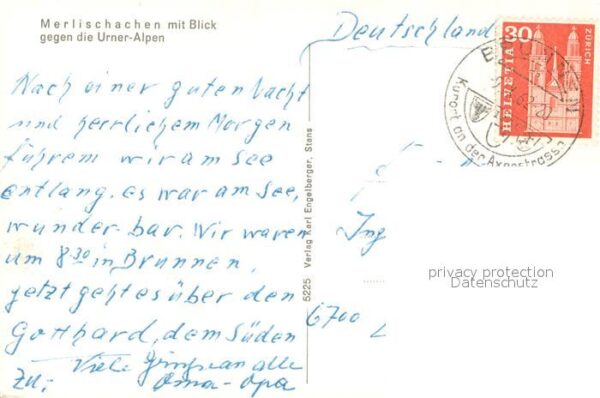 Merlischachen mit Blick
gegen die Urner-Alpen
Deutschland
30
HELVETIA
ZÜRICH
BRUNNEN
Kurort an der Axenstrasse
Nach einer guten Nacht
und herrlichem Morgen
führem wir am See
entlang. es war am See,
wunder-bar. Wir waren
um 8 30 in Brunnen,
jetzt geht es über den
Gotthard, dem Süden
zu. Viele an alle
Oma-Opa
5225 Verlag Karl Engelberger, Stans
Ing
6700 L
privacy protection
Datenschutz